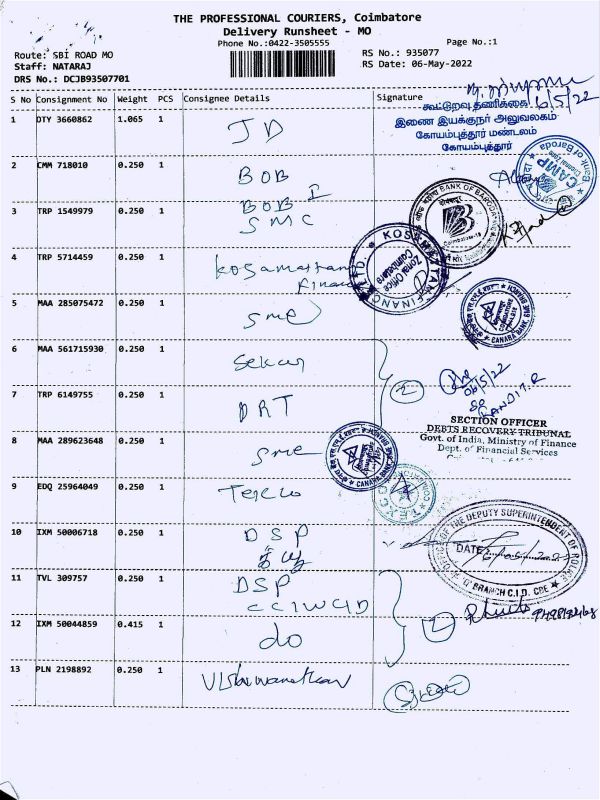 THE PROFESSIONAL COURIERS, Coimbatore
Delivery Runsheet - MO
Phone No.:0422-3505555
Page No.:1
Route: SBI ROAD MO
RS No.: 935077
Staff: NATARAJ
RS Date: 06-May-2022
DRS No.: DCJB93507701
S No Consignment No Weight PCS Consignee Details Signature
6/5/22
கூட்டுறவு தணிக்கை
இணை இயக்குநர் அலுவலகம்
கோயம்புத்தூர் மண்டலம்
கோயம்புத்தூர்
1 DTY 3660862 1.065 1 JD
2 CMM 718010 0.250 1 BOB
Bank of Baroda
CAMP
BOB I
3 TRP 1549979 0.250 1 SMC
BANK OF BARODA
Coimbatore-18
4 TRP 5714459 0.250 1 Kosamattam
Finance
KOSAMATTAM FINANCE LTD.
Zonal Office
Coimbatore
5 MAA 285075472 0.250 1 sme
CANARA BANK
6 MAA 561715930 0.250 1 Sekar
2
06/5/22
7 TRP 6149755 0.250 1 DRT
SECTION OFFICER
DEBTS RECOVERY TRIBUNAL
Govt. of India, Ministry of Finance
Dept. of Financial Services
8 MAA 289623648 0.250 1 sme
CANARA BANK
9 EDQ 25964049 0.250 1 Texco
10 IXM 50006718 0.250 1 DSP
OFFICE OF THE DEPUTY SUPERINTENDENT OF POLICE
DATE
'Q' BRANCH C.I.D. CBE
11 TVL 309757 0.250 1 DSP
CCIWCID
12 IXM 50044859 0.415 1 do
2
13 PLN 2198892 0.250 1 Vishwanathan